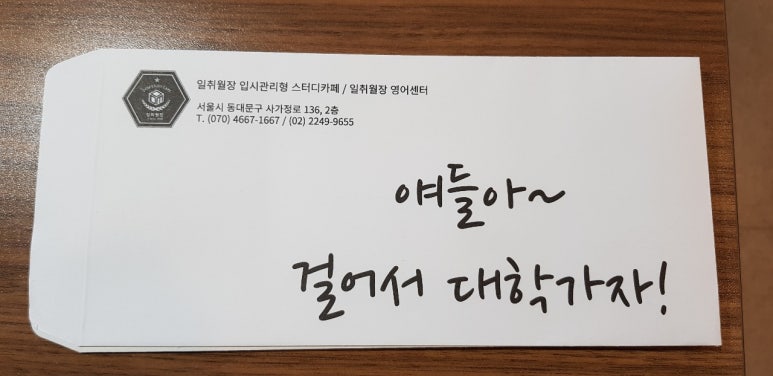 일취월장 입시관리형 스터디카페 / 일취월장 영어센터
서울시 동대문구 사가정로 136, 2층
T. (070) 4667-1667 / (02) 2249-9655
일취월장
얘들아~
걸어서 대학가자!